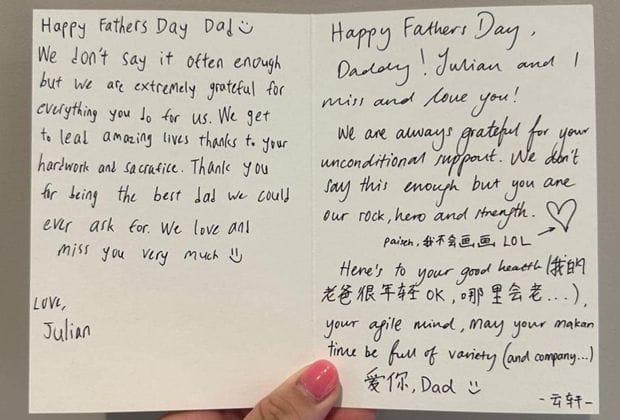 Happy Fathers Day Dad
We don't say it often enough
but we are extremely grateful for
everything you do for us. We get
to lead amazing lives thanks to your
hardwork and sacrafice. Thank you
for being the best dad we could
ever ask for. We love and
miss you very much
LOVE,
Julian
Happy Fathers Day,
Daddy! Julian and I
miss and love you!
We are always grateful for your
unconditional support. We don't
say this enough but you are
our rock, hero and strength.
paiseh, 我不会画画 LOL
Here's to your good health (我的
老爸很年轻 OK, 哪里会老...),
your agile mind, may your makan
time be full of variety (and company...)
爱你, Dad
- 云轩 -